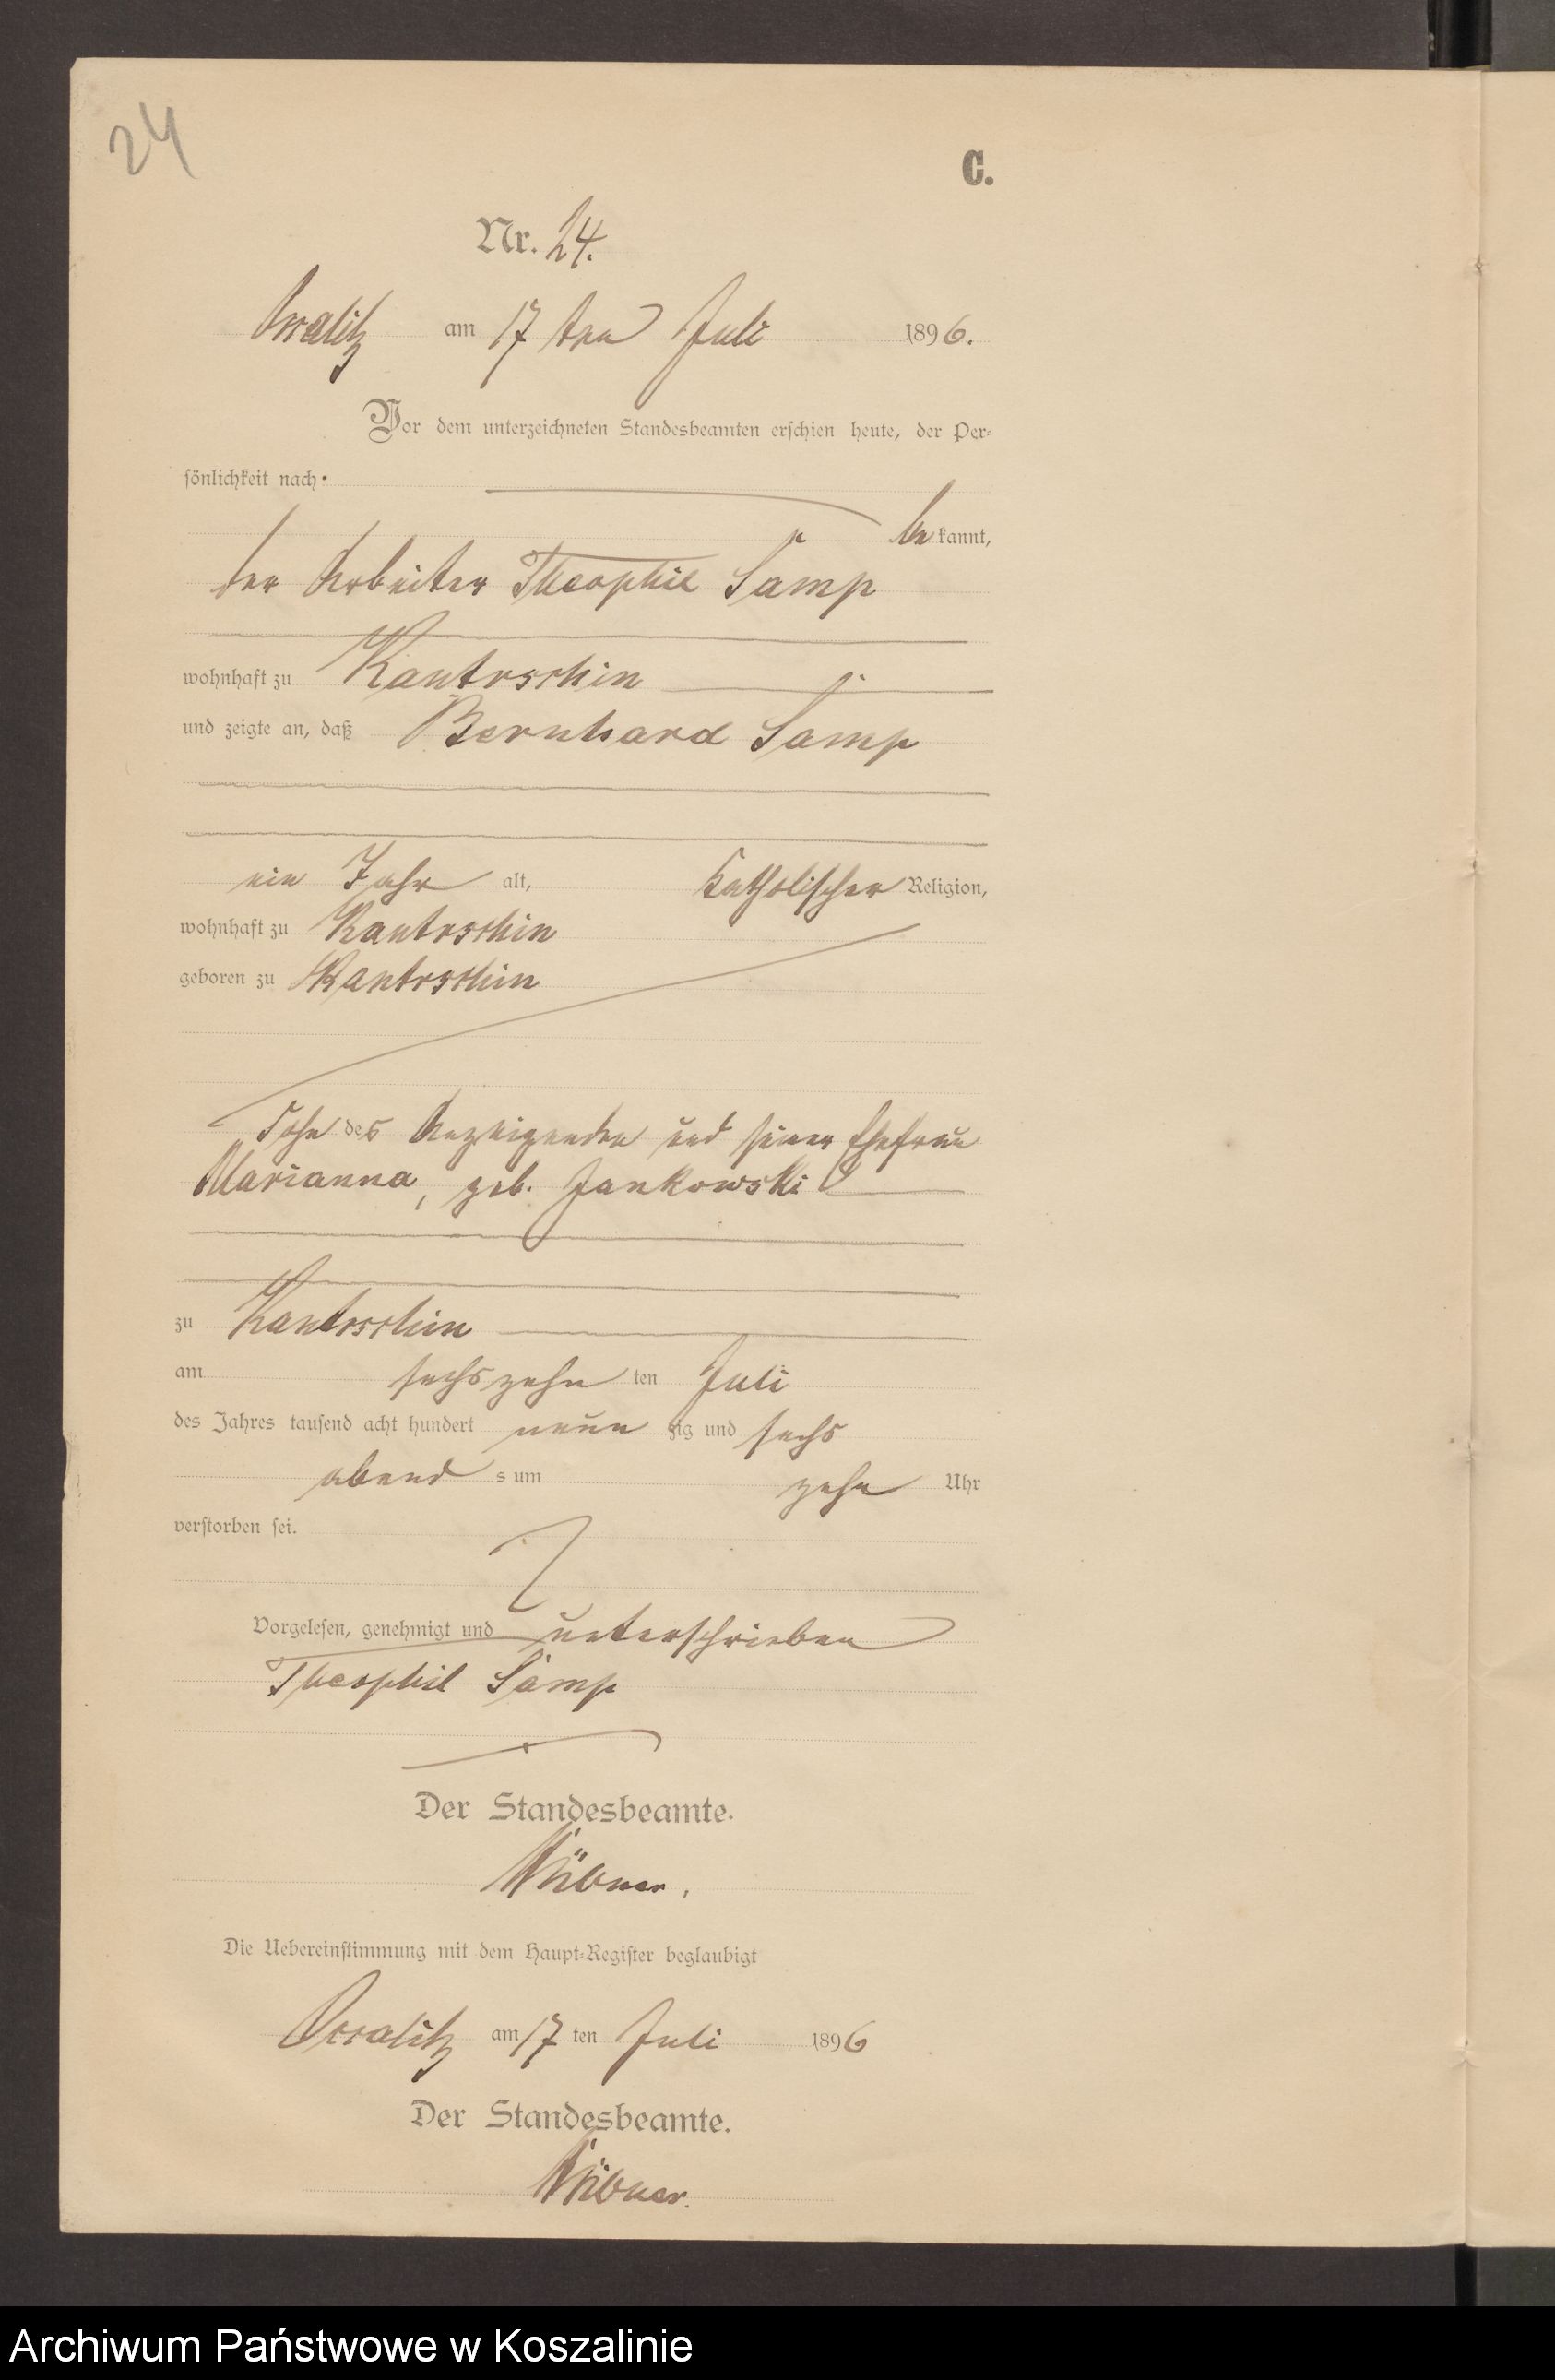 24
C.
Nr. 24.
am 17 ten Juli 1896.
Vor dem unterzeichneten Standesbeamten erschien heute, der Per-
sönlichkeit nach
be kannt,
der Arbeiter Theophil Samp
wohnhaft zu Kantrschin
und zeigte an, daß Bernhard Samp
ein Jahr alt, katholischer Religion,
wohnhaft zu Kantrschin
geboren zu Kantrschin
Sohn des Anzeigenden und seiner Ehefrau
Marianna, geb. Jankowski
zu Kantrschin
am sechszehn ten Juli
des Jahres tausend acht hundert neun zig und sechs
abend s um zehn Uhr
verstorben sei.
Vorgelesen, genehmigt und unterschrieben
Theophil Samp
Der Standesbeamte.
Die Uebereinstimmung mit dem Haupt-Register beglaubigt
am 17 ten Juli 1896
Der Standesbeamte.
Archiwum Państwowe w Koszalinie